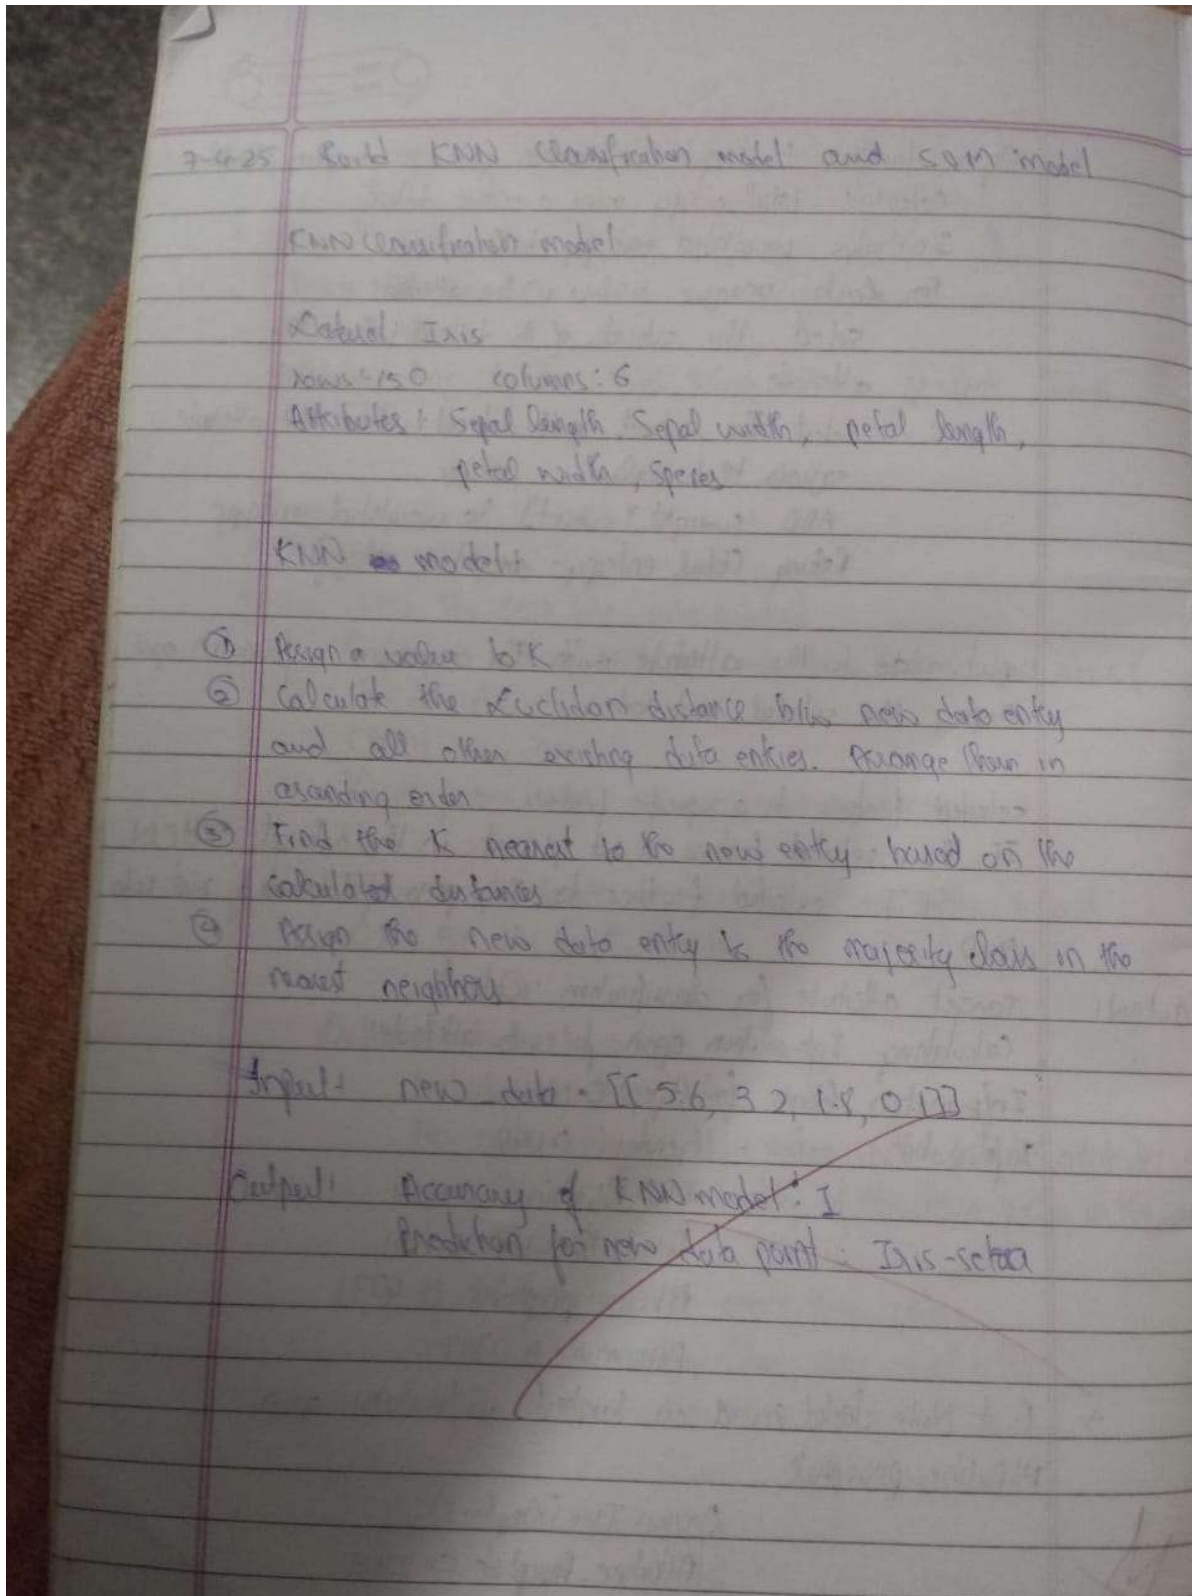 7-4-25 Build KNN Classification model and SVM model
KNN Classification model
Dataset Iris
rows: 150 columns: 6
Attributes: Sepal length, Sepal width, petal length,
petal width, Speces
KNN model:
① Assign a value to K
② Calculate the Euclidan distance b/w new data entry
and all other existing data enties. Arrange them in
ascending order
③ Find the K nearest to the new entry based on the
calculated distances
④ Assign the new data entry to the majority class in the
nearest neighbou
Input: new data = [[5.6, 3.2, 1.8, 0.1]]
Output: Accuracy of KNN model: 1
Prediction for new data point: Iris-setosa